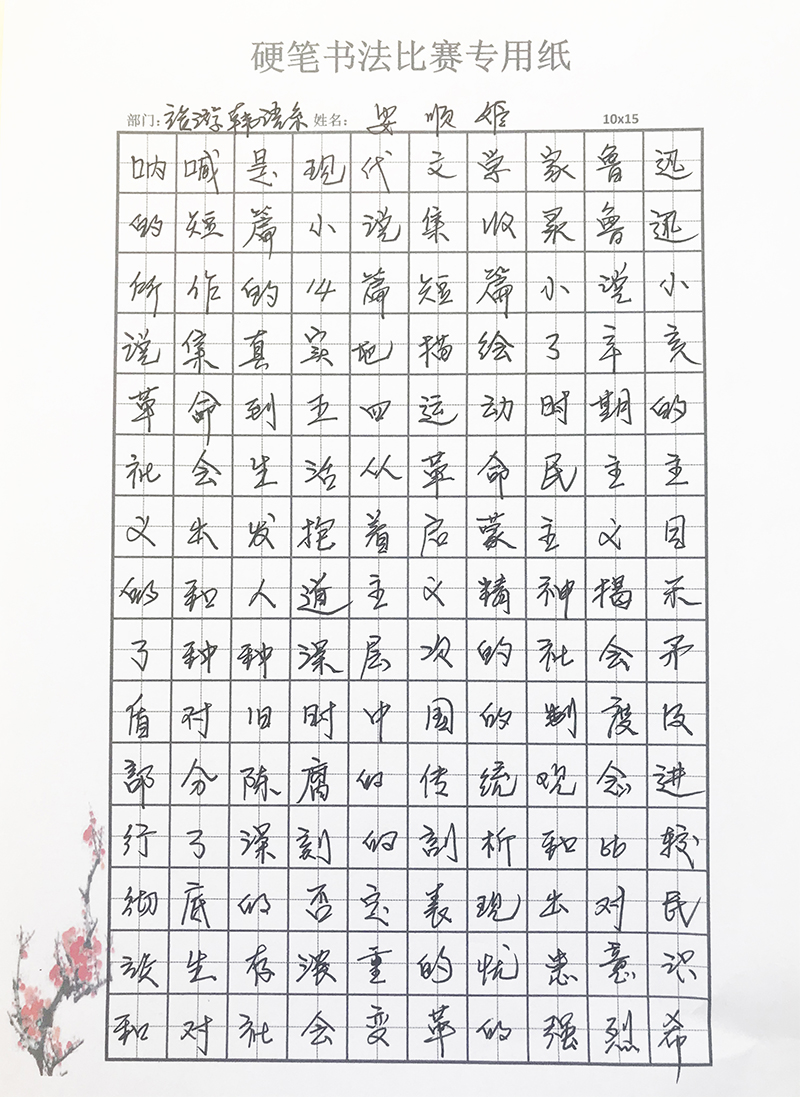 硬笔书法比赛专用纸
部门：旅游韩语系 姓名： 安顺姬 10x15
呐喊是现代文学家鲁迅
的短篇小说集收录鲁迅
所作的14篇短篇小说小
说集真实地描绘了辛亥
革命到五四运动时期的
社会生活从革命民主主
义出发抱着启蒙主义目
的和人道主义精神揭示
了种种深层次的社会矛
盾对旧时中国的制度及
部分陈腐的传统观念进
行了深刻的剖析和比较
彻底的否定表现出对民
族生存浓重的忧患意识
和对社会变革的强烈希